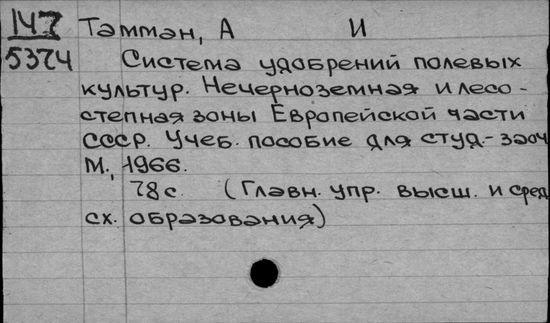 147 Тамман, А И
5374 Система удобрений полевых
культур. Нечерноземная и лесо-
степная зоны Европейской части
СССР. Учеб. пособие для студ.-заоч
М., 1966.
78 с. (Главн. упр. высш. и сред
сх. образования)